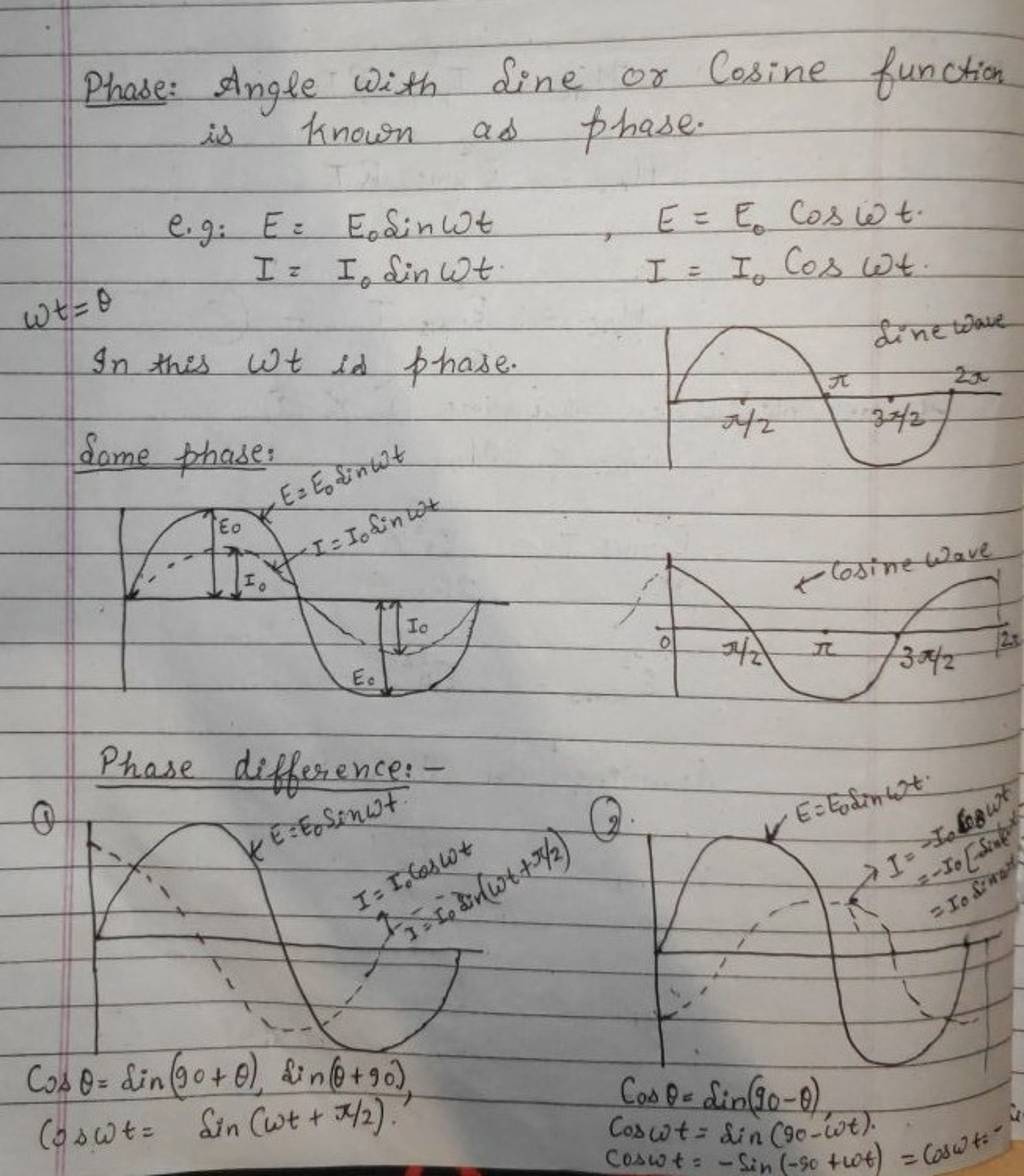 Phase: Angle with Sine or Cosine function
is known as phase.
e.g: E = E₀ Sin ωt , E = E₀ Cos ωt.
I = I₀ Sin ωt. I = I₀ Cos ωt.
ωt = θ
In this ωt is phase.
Sine wave
π/2 π 3π/2 2π
Same phase:
E = E₀ Sin ωt
I = I₀ Sin ωt
E₀ I₀ I₀ E₀
Cosine wave
0 π/2 π 3π/2 2π
Phase difference:-
①
E = E₀ Sin ωt.
I = I₀ Cos ωt
I = I₀ Sin(ωt + π/2)
Cos θ = Sin(90 + θ), Sin(θ + 90),
Cos ωt = Sin (ωt + π/2).
②.
E = E₀ Sin ωt.
I = -I₀ Cos ωt
= -I₀ [-Sin
= I₀ Sin
Cos θ = Sin(90 - θ),
Cos ωt = Sin (90 - ωt).
Cos ωt = - Sin (-90 + ωt) = Cos ωt = -